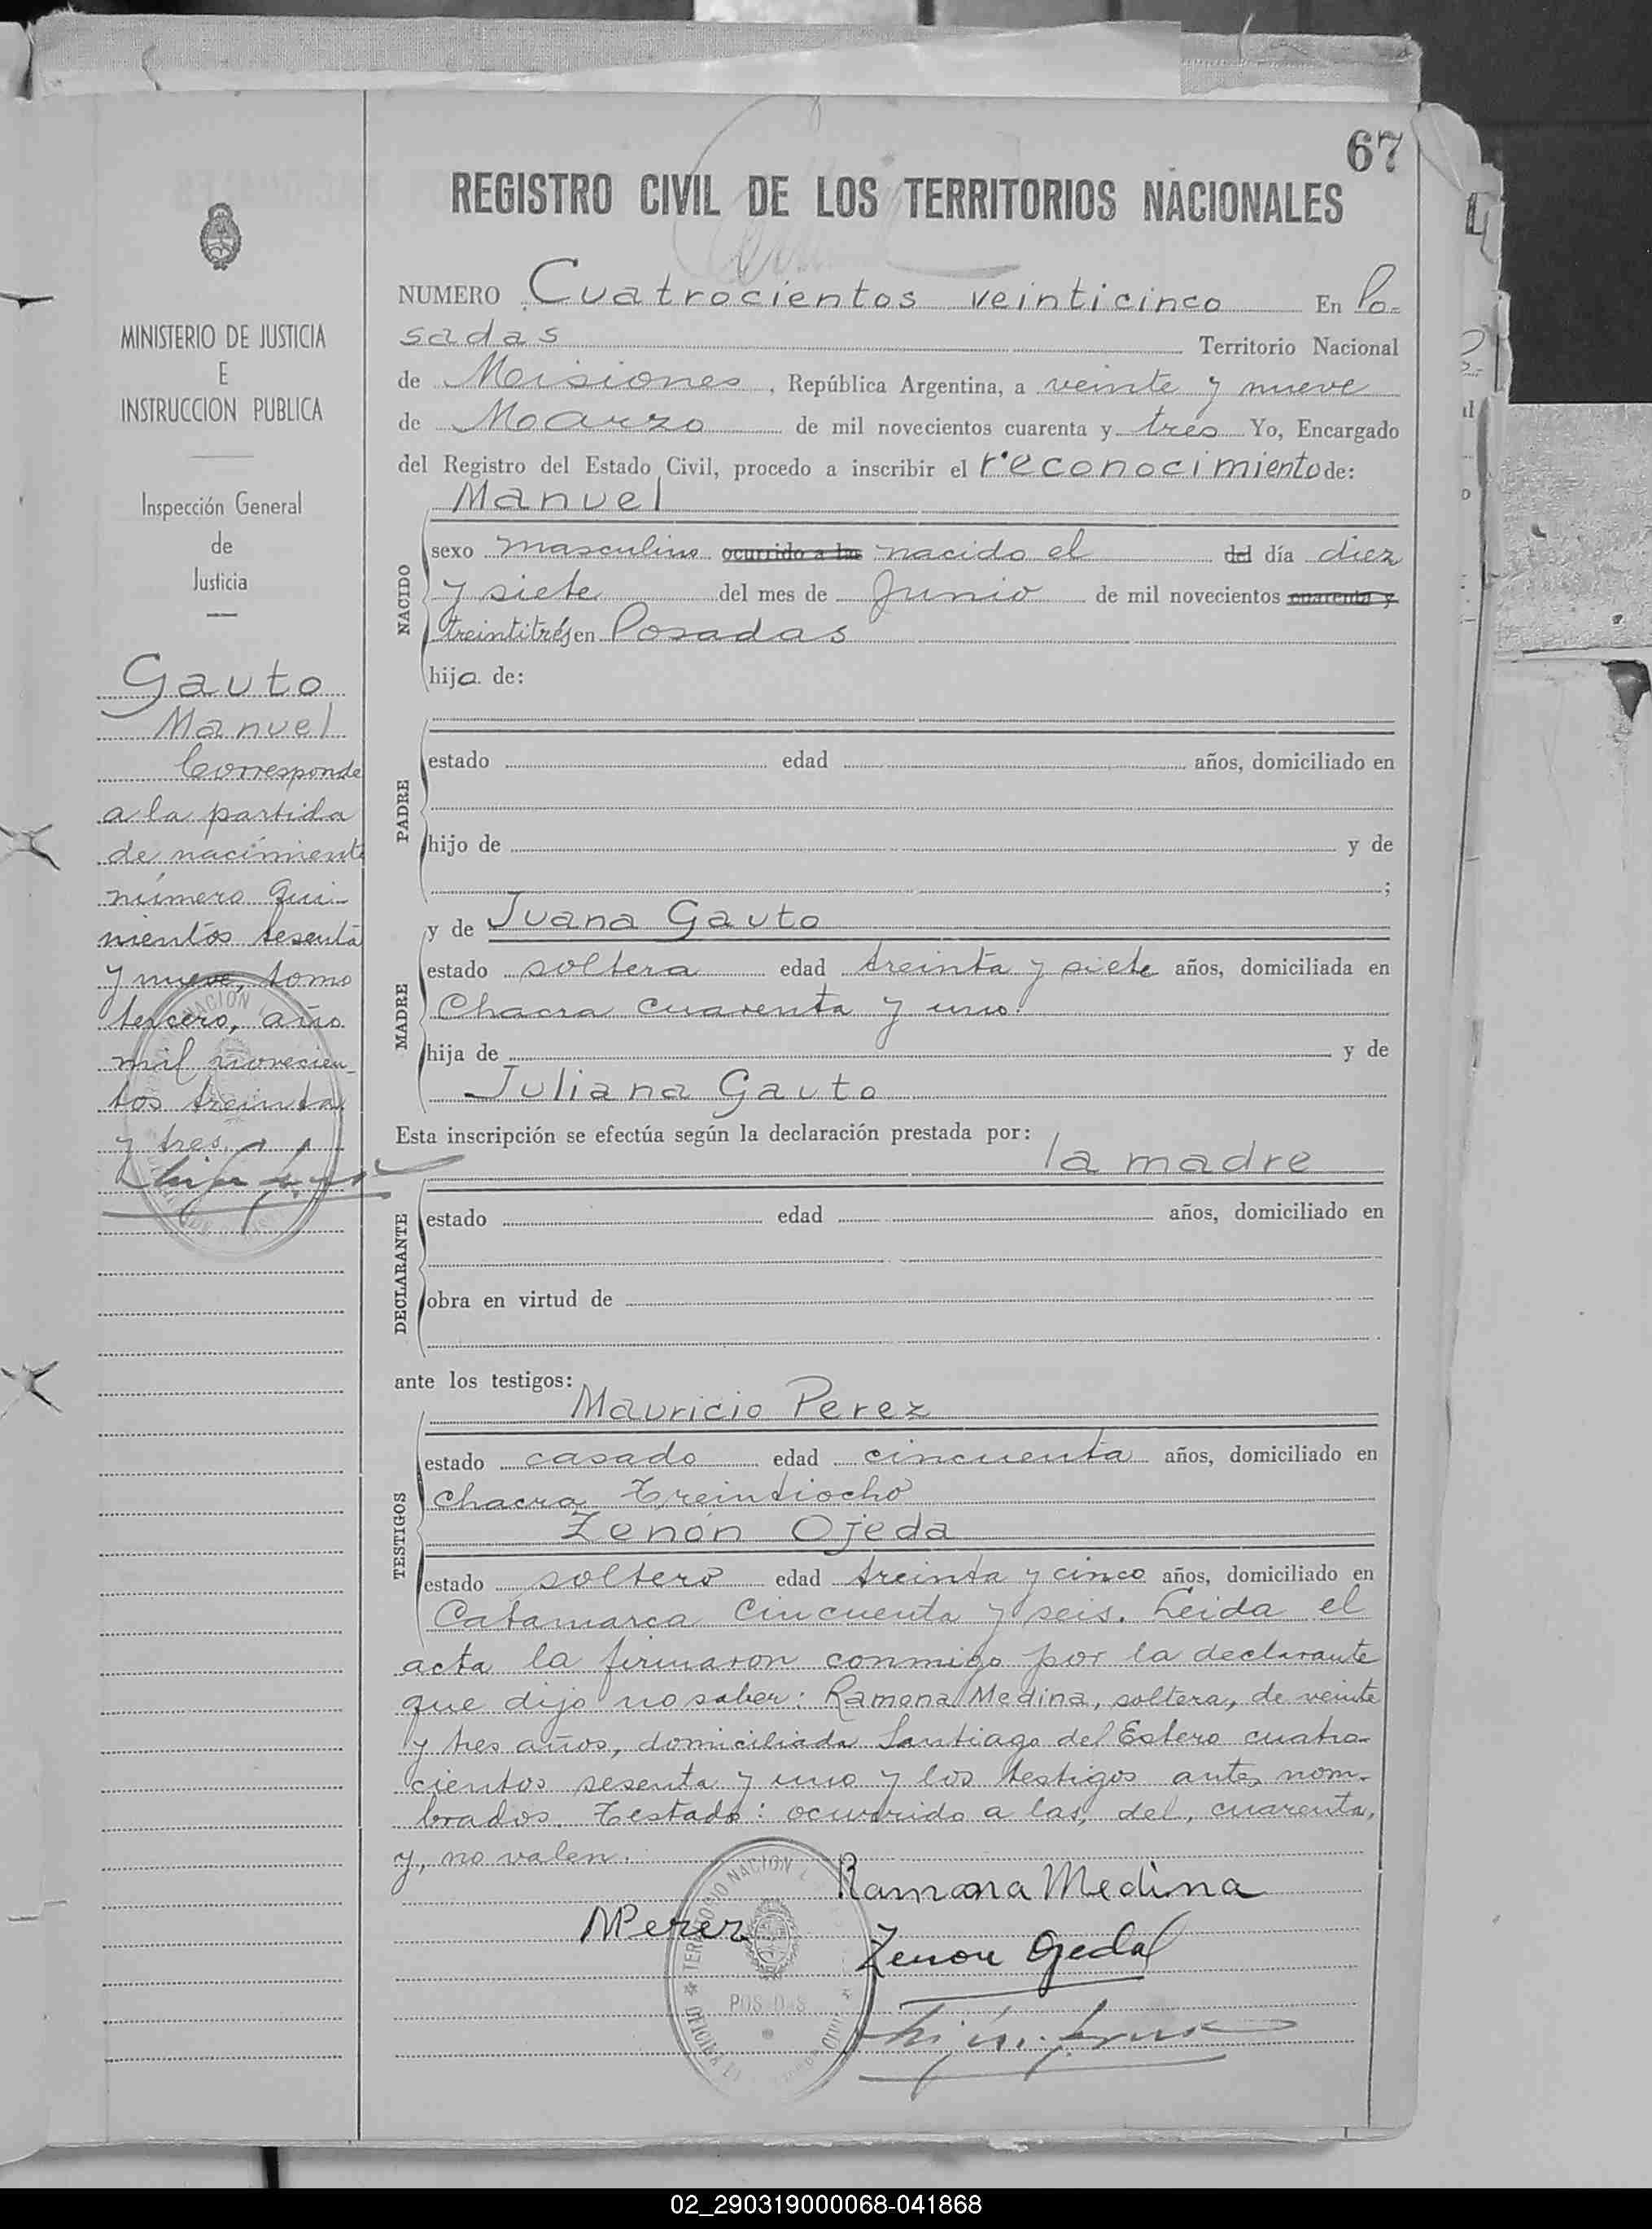 67
REGISTRO CIVIL DE LOS TERRITORIOS NACIONALES
MINISTERIO DE JUSTICIA
E
INSTRUCCION PUBLICA
Inspección General
de
Justicia
Gauto
Manuel
Corresponde
a la partida
de nacimiento
número qui-
nientos sesenta
y nueve, tomo
tercero, año
mil novecien-
tos treinta
y tres.
NUMERO Cuatrocientos veinticinco En Po-
sadas Territorio Nacional
de Misiones, República Argentina, a veinte y nueve
de Marzo de mil novecientos cuarenta y tres Yo, Encargado
del Registro del Estado Civil, procedo a inscribir el reconocimiento de:
Manuel
NACIDO
sexo masculino ocurrido a las nacido el del día diez
y siete del mes de Junio de mil novecientos cuarenta y
treintitrés en Posadas
hijo de:
PADRE
estado edad años, domiciliado en
hijo de y de
;
MADRE
y de Juana Gauto
estado soltera edad treinta y siete años, domiciliada en
Chacra cuarenta y uno.
hija de y de
Juliana Gauto
Esta inscripción se efectúa según la declaración prestada por:
la madre
DECLARANTE
estado edad años, domiciliado en
obra en virtud de
ante los testigos:
TESTIGOS
Mauricio Perez
estado casado edad cincuenta años, domiciliado en
Chacra Treintiocho
Zenón Ojeda
estado soltero edad treinta y cinco años, domiciliado en
Catamarca Cincuenta y seis. Leida el
acta la firmaron conmigo por la declarante
que dijo no saber: Ramona Medina, soltera, de veinte
y tres años, domiciliada Santiago del Estero cuatro-
cientos sesenta y uno y los testigos antes nom-
brados. Testado: ocurrido a las, del, cuarenta,
y, no valen.
Ramona Medina
MPerez
Zenon Ojeda
TERRITORIO NACIONAL
POSADAS
02_290319000068-041868